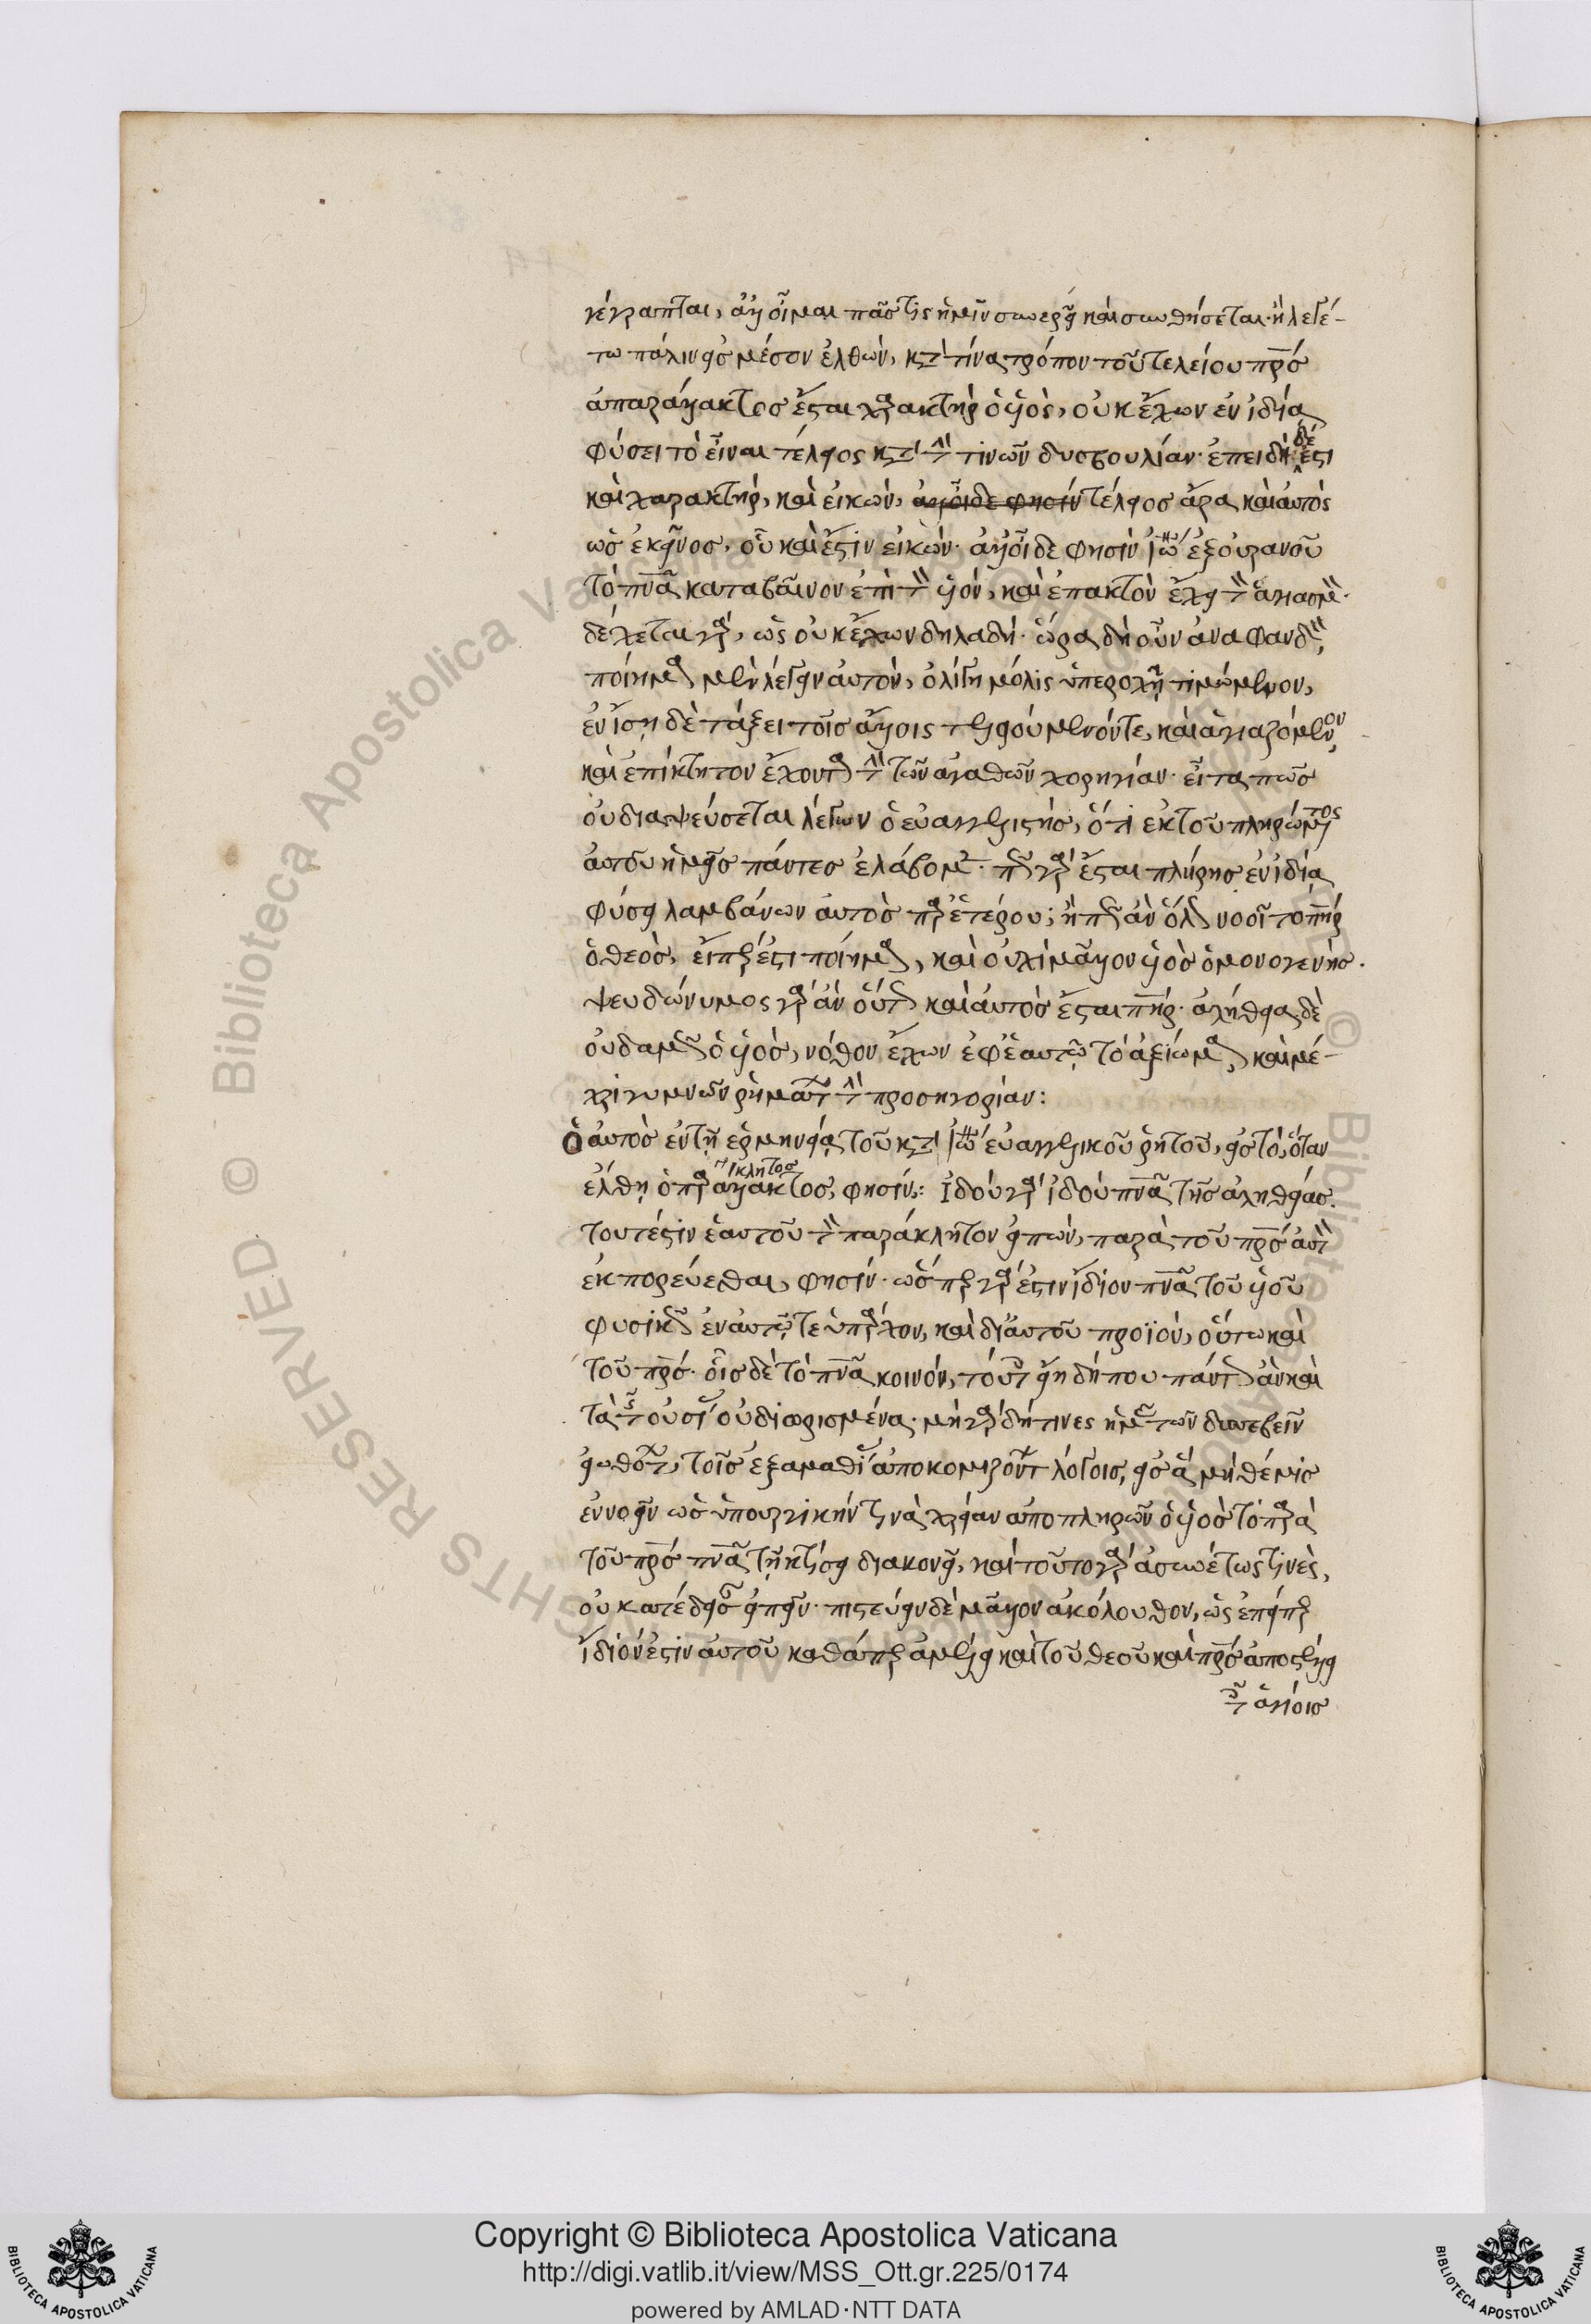 γέγραπται, ἀλλ' οἶμαι πᾶς τις ἡμῖν συνερεῖ καὶ συνθήσεται· ἢ λεγέ-
τω πάλιν εἰς μέσον ἐλθών, κατὰ τίνα τρόπον τοῦ τελείου πρσ
ἀπαράλλακτος ἔσται χαρακτὴρ ὁ υἱὸς, οὐκ ἔχων ἐν ἰδίᾳ
φύσει τὸ εἶναι τέλειος κατὰ τὴν τινῶν δυσβουλίαν· ἐπειδὴ δέ ἐστι
καὶ χαρακτὴρ, καὶ εἰκών, τέλειος ἄρα καὶ αὐτὸς
ὡς ἐκεῖνος, οὗ καὶ ἔστιν εἰκών· ἀλλ' οἶδε φησὶν ἰω ἐξ οὐρανοῦ
τὸ πνα καταβαῖνον ἐπὶ τὸν υἱόν, καὶ ἐπακτὸν ἔχει τὸν ἁγιασμόν·
δέχεται γὰρ, ὡς οὐκ ἔχων δηλαδή· ὥρα δὴ οὖν ἀναφανδὸν,
ποίημα μὲν λέγειν αὐτὸν, ὀλίγῃ μόλις ὑπεροχῇ τιμώμενον,
ἐν ἴσῃ δὲ τάξει τοῖς ἄλλοις τελειούμενόν τε, καὶ ἁγιαζόμενον,
καὶ ἐπίκτητον ἔχοντα τὴν τῶν ἀγαθῶν χορηγίαν· εἶτα πῶς
οὐ διαψεύσεται λέγων ὁ εὐαγγελιστής, ὅτι ἐκ τοῦ πληρώματος
αὐτοῦ ἡμεῖς πάντες ἐλάβομεν· πῶς γὰρ ἔσται πλήρης ἐν ἰδίᾳ
φύσει λαμβάνων αὐτὸς παρ' ἑτέρου; ἢ πῶς ἂν ὅλως νοοῖτο πηρ
ὁ θεὸς, εἴπερ ἐστι ποίημα, καὶ οὐχὶ μᾶλλον υἱὸς ὁ μονογενής·
ψευδώνυμος γὰρ ἂν οὕτως καὶ αὐτὸς ἔσται πηρ· ἀλήθεια δὲ
οὐδαμῶς ὁ υἱὸς, νόθον ἔχων ἐφ' ἑαυτῷ τὸ ἀξίωμα, καὶ μέ-
χρι γυμνῶν ῥημάτων τὴν προσηγορίαν:
ὁ αὐτὸς ἐν τῇ ἑρμηνείᾳ τοῦ κατὰ ἰω εὐαγγελικοῦ ῥητοῦ, εἰς τὸ, ὅταν
ἔλθῃ ὁ παράκλητος, φησίν: ἰδοὺ γὰρ ἰδοὺ πνα τῆς ἀληθείας.
τουτέστιν ἑαυτοῦ τὸν παράκλητον εἰπὼν, παρὰ τοῦ πρσ αὐτὸν
ἐκπορεύεσθαι, φησίν· ὥσπερ γὰρ ἐστιν ἴδιον πνα τοῦ υἱοῦ
φυσικῶς ἐν αὐτῷ τε ὑπάρχον, καὶ δι' αὐτοῦ προϊόν, οὕτω καὶ
τοῦ πρσ· οἷς δὲ τὸ πνα κοινόν, τούτοις εἴη δήπου πάντως ἂν καὶ
τὰ τῆς οὐσίας οὐ διωρισμένα· μὴ γὰρ δή τινες ἡμᾶς τῶν δυσσεβεῖν
εἰωθότων, τοῖς ἐξ ἀμαθίας ἀποκομιζόντων λόγοις, εἰς ἃ μὴ θέμις
ἐννοεῖν ὡς ὑπουργικήν τινὰ χρείαν ἀποπληρῶν ὁ υἱὸς τὸ παρὰ
τοῦ πρσ πνα τῇ κτίσει διακονεῖ, καὶ τοῦτο γὰρ ἀσυνέτως τινὲς,
οὐ κατέδεισαν εἰπεῖν· πιστεύειν δὲ μᾶλλον ἀκόλουθον, ὡς ἐπείπερ
ἴδιόν ἐστιν αὐτοῦ καθάπερ ἀμέλει καὶ τοῦ θεοῦ καὶ πρσ ἀποστέλλει
τοῖς ἁγίοις
Copyright © Biblioteca Apostolica Vaticana
http://digi.vatlib.it/view/MSS_Ott.gr.225/0174
powered by AMLAD·NTT DATA